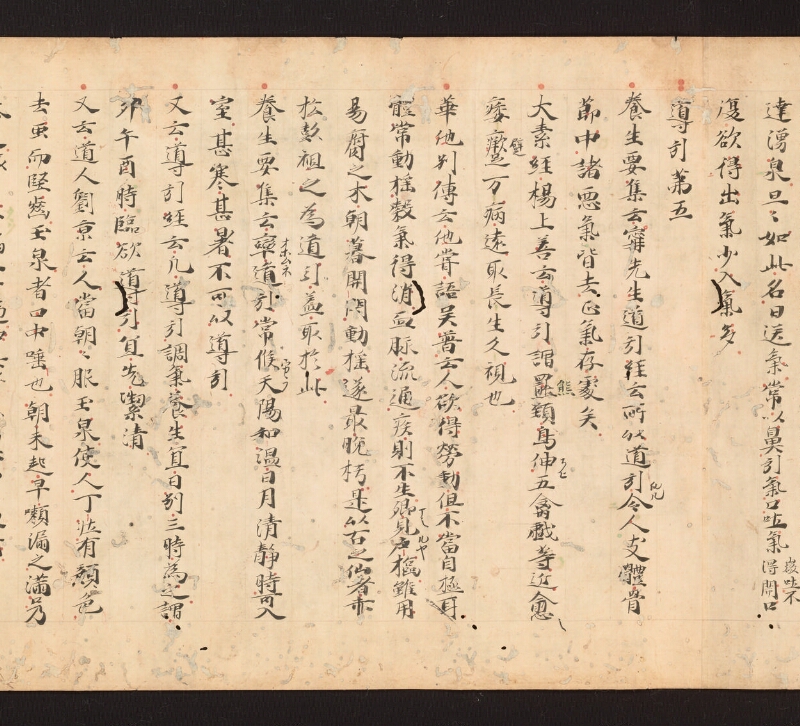 達湧泉旦〻如此名曰送氣常以鼻引氣口吐氣微吐不得開口
復欲得出氣少入氣多
導引第五
養生要集云甯先生道引經云所以道引令人支體骨
節中諸惡氣皆去正氣存處矣
大素經楊上善云導引謂羆熊頸鳥伸五禽戲等近愈
痿躄万病遠取長生久視也
華他別傳云他嘗語吴普云人欲得勞動但不當自極耳
體常動搖穀氣得消血脉流通疾則不生卿見户樞雖用
易腐之木朝暮開閇動搖遂最晚朽是以古之仙者赤
松彭祖之為道引蓋取於此
養生要集云寧道引常候天陽和温日月清静時可入
室甚寒甚暑不可以導引
又云導引經云凡導引調氣養生宜日別三時為之謂
卯午酉時臨欲導引宜先潔清
又云道人劉京云人當朝〻服玉泉使人丁壯有顔色
去虫而堅齒玉泉者口中唾也朝未起早嗽漏之滿口乃